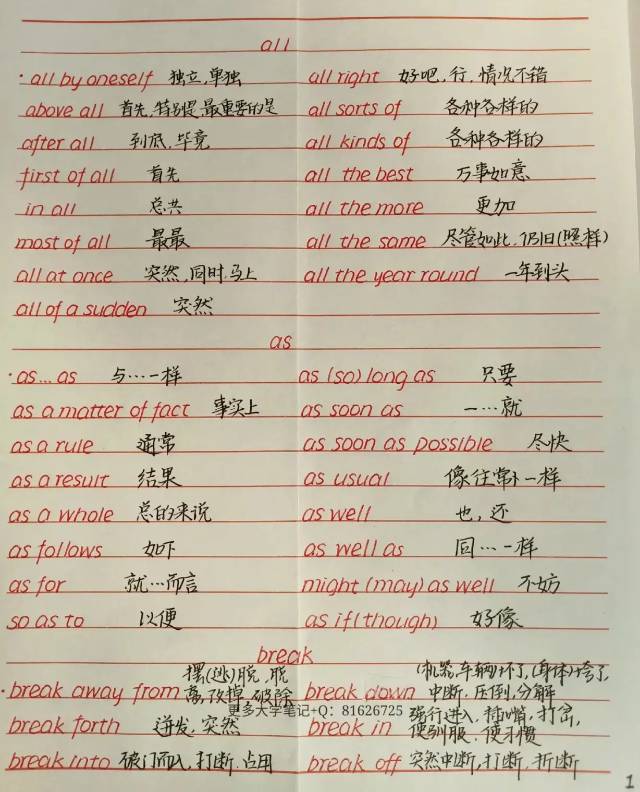 all
· all by oneself 独立,单独 all right 好吧,行,情况不错
above all 首先,特别是,最重要的是 all sorts of 各种各样的
after all 到底,毕竟 all kinds of 各种各样的
first of all 首先 all the best 万事如意
in all 总共 all the more 更加
most of all 最最 all the same 尽管如此,仍旧(照样)
all at once 突然,同时,马上 all the year round 一年到头
all of a sudden 突然
as
· as...as 与…一样 as (so) long as 只要
as a matter of fact 事实上 as soon as 一…就
as a rule 通常 as soon as possible 尽快
as a result 结果 as usual 像往常一样
as a whole 总的来说 as well 也,还
as follows 如下 as well as 同…一样
as for 就…而言 might (may) as well 不妨
so as to 以便 as if (though) 好像
break
· break away from 摆(逃)脱,脱离,改掉,破除 break down (机器,车辆)坏了,(身体)垮了,中断,压倒,分解
更多大学笔记+Q: 81626725
break forth 迸发,突然 break in 强行进入,插嘴,打岔,使驯服,使习惯
break into 破门而入,打断,占用 break off 突然中断,打断,折断
1